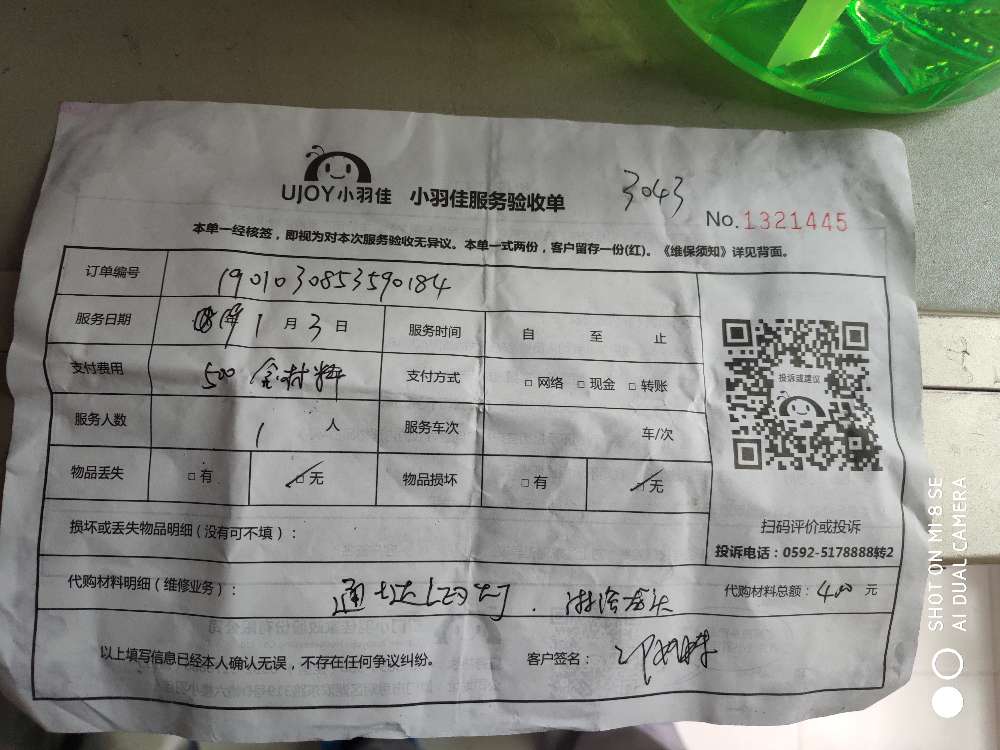 UJOY小羽佳 小羽佳服务验收单 3043
No.1321445
本单一经核签，即视为对本次服务验收无异议。本单一式两份，客户留存一份(红)。《维保须知》详见背面。
订单编号 190103085359​0184
服务日期 19年1月3日 服务时间 自 至 止
支付费用 500 含材料 支付方式 □网络 □现金 □转账
服务人数 1人 服务车次 车/次
物品丢失 □有 □无 物品损坏 □有 □无
投诉或建议
扫码评价或投诉
投诉电话：0592-5178888转2
损坏或丢失物品明细(没有可不填)：
代购材料明细(维修业务)： 通 灯、淋浴龙头 代购材料总额：400元
以上填写信息已经本人确认无误，不存在任何争议纠纷。 客户签名：
SHOT ON MI 8 SE
AI DUAL CAMERA